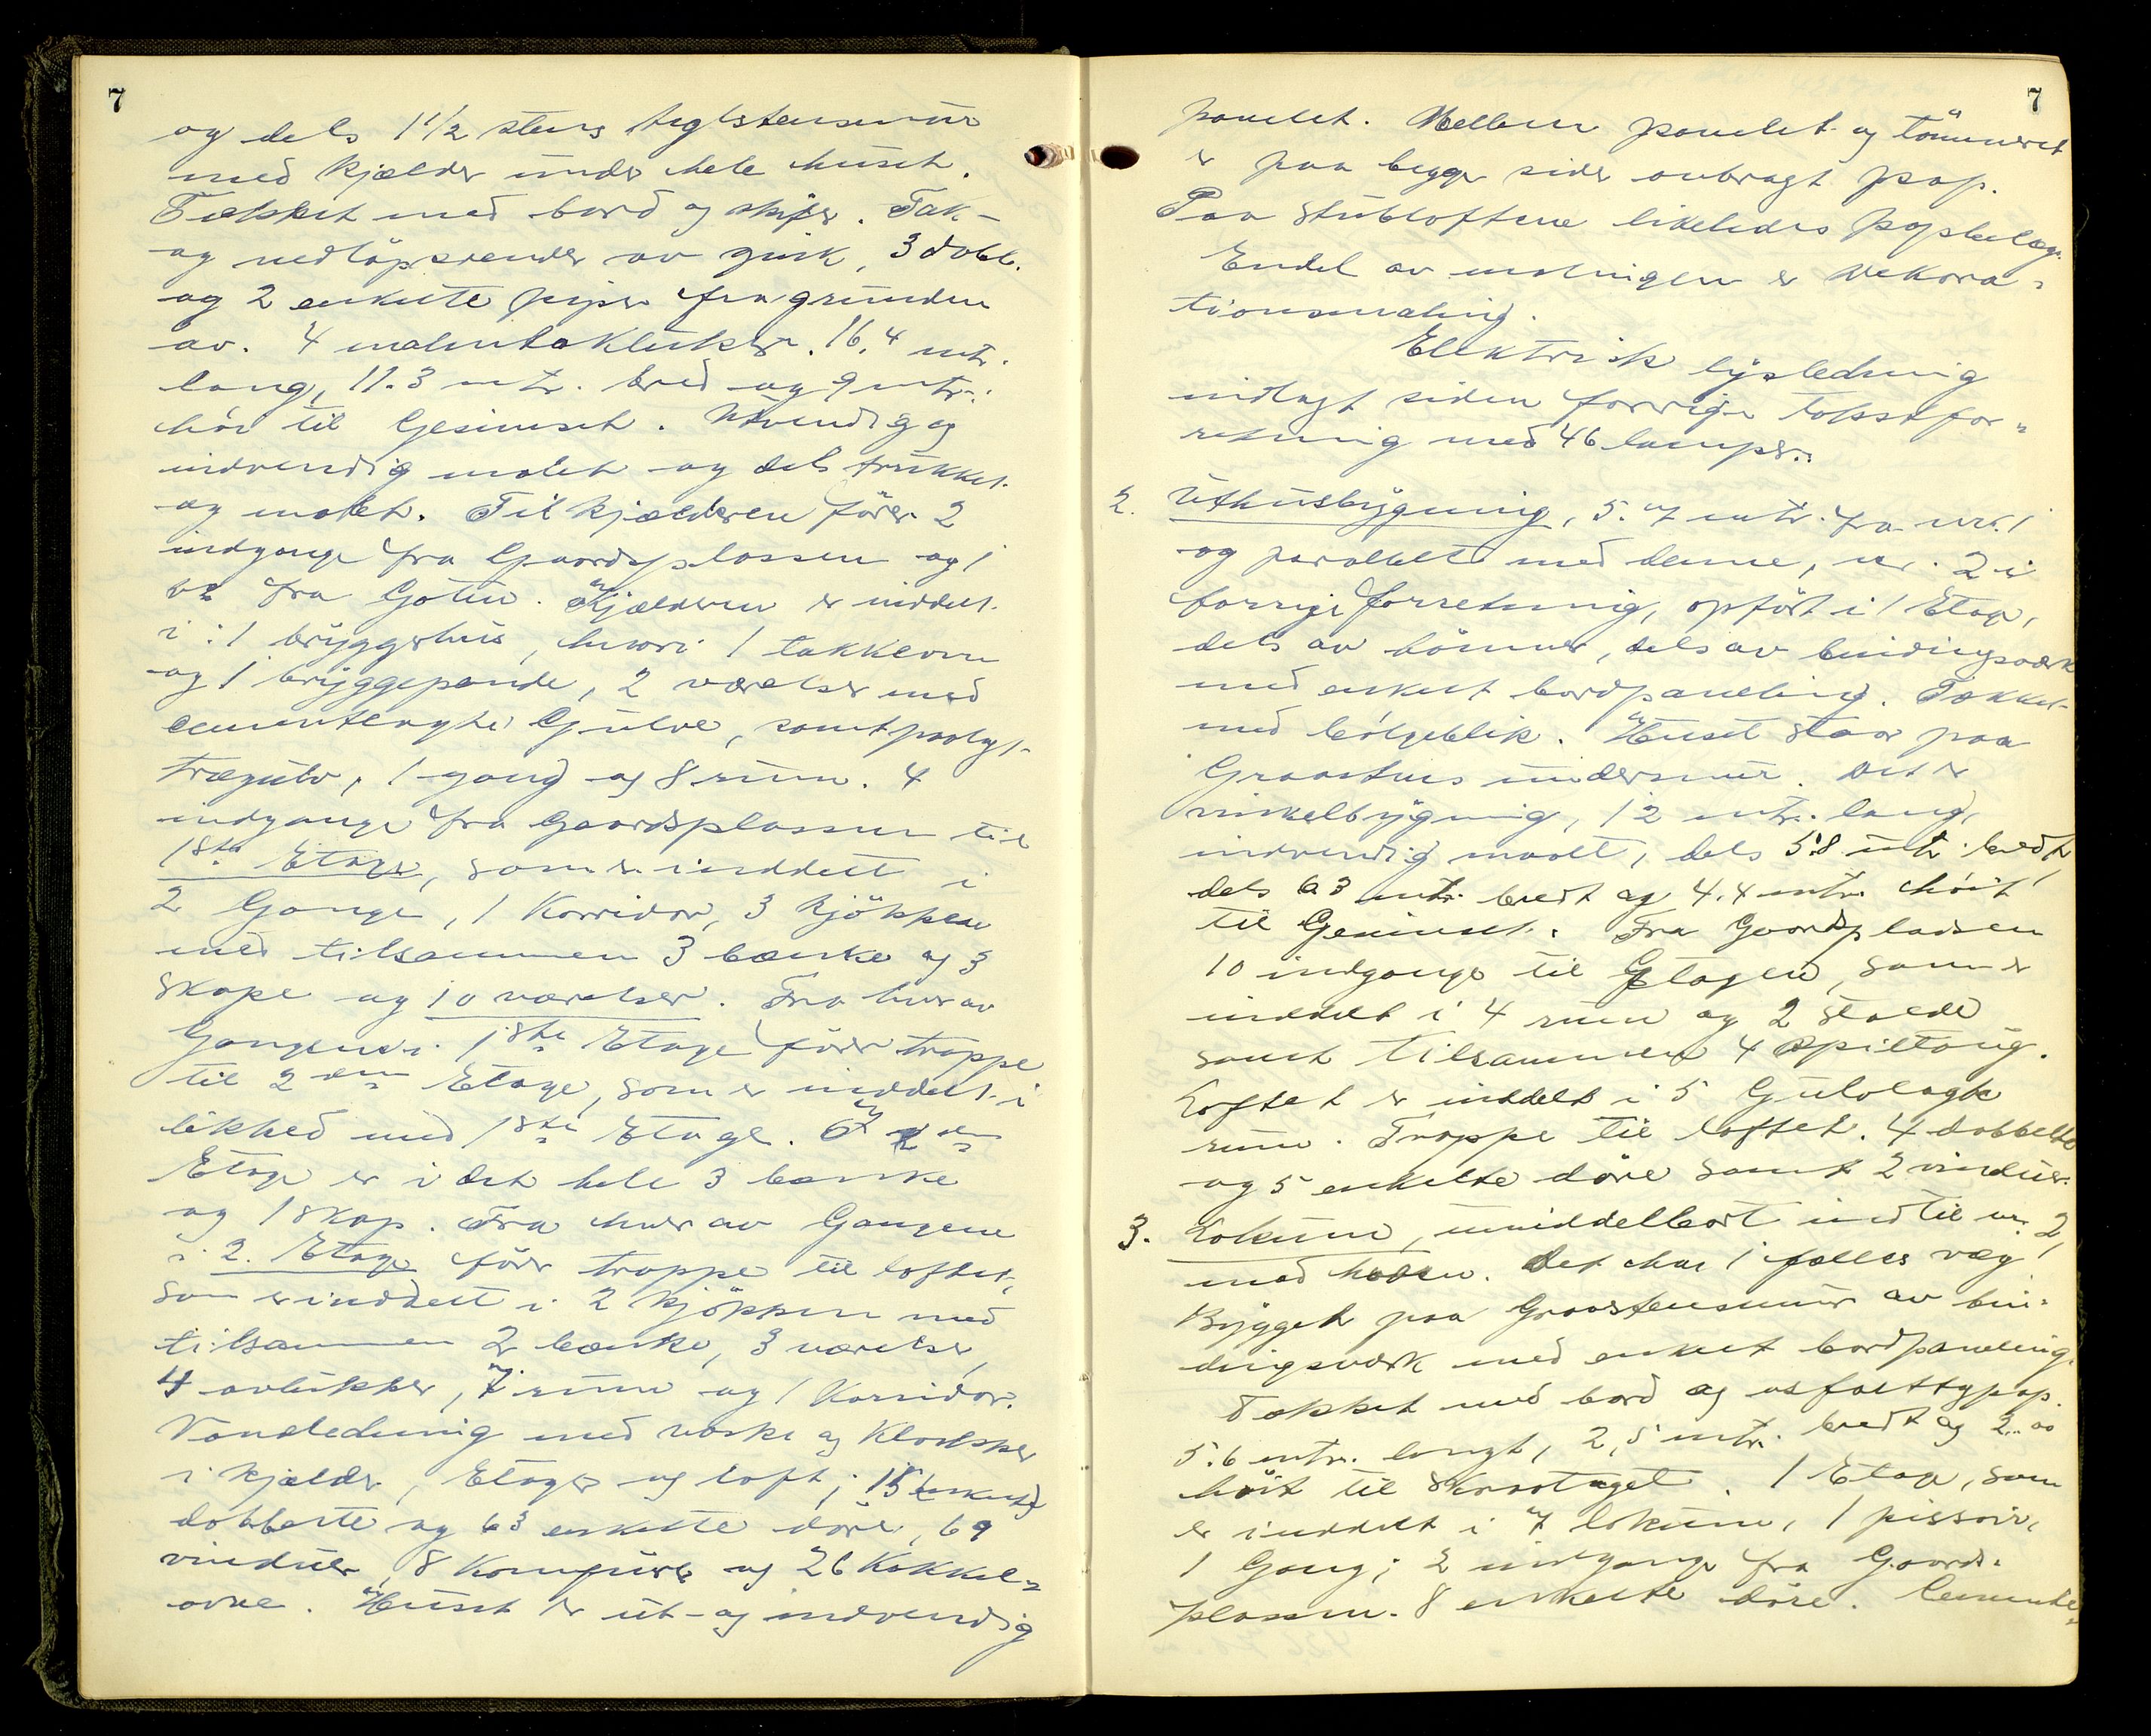 7
og dels 1 1/2 stens teglstensmur
med kjælder under hele huset.
Tækket med bord og skifer. Tak-
og nedløpsrender av zink, 3 dobb.
og 2 enkelte piper fra grunden
av. 4 malmtakluker. 16,4 mtr.
lang, 11.3 mtr. bred og 9 mtr.
høi til Gesimset. Utvendig og
indvendig malet og dels trukket
og malet. Til kjælderen fører 2
indgange fra Gaardsplassen og 1
do fra Gaten. Kjælderen er inddelt
i: 1 bryggerhus, hvori 1 takkeovn
og 1 bryggepande, 2 værelser med
cementlagte Gulve, samt paalagt
trægulv, 1 gang og 8 rum. 4
indgange fra Gaardsplassen til
1ste Etage, som er inddelt i
2 Gange, 1 Korridor, 3 kjøkken
med tilsammen 3 bænke og 3
skape og 10 værelser. Fra hver av
Gangene i 1ste Etage fører trappe
til 2den Etage, som er inddelt i
likhed med 1ste Etage. I 2den
Etage er i det hele 3 bænke
og 1 skap. Fra hver av Gangene
i 2. Etage fører trappe til loftet,
som er inddelt i 2 kjøkken med
tilsammen 2 bænke, 3 værelser,
4 avlukker, 7 rum og 1 Korridor.
Vandledning med vaske og Klosetter
i kjælder, Etager og loft; 15
dobbelte og 63 enkelte døre, 69
vinduer, 8 Komfurer og 26 Kakkel-
ovne. Huset er ut- og indvendig
7
panelet. Mellem panelet og tømmeret
er paa begge sider anbragt pap.
Paa stubloftene likeledes papbelæg.
Endel av malingen er dekora-
tionsmaling.
Elektrisk lysledning
indlagt siden forrige takstfor-
retning med 46 lamper.
2. Uthusbygning, 5.7 mtr. fra nr. 1
og parallelt med denne, nr. 2 i
forrige forretning, opført i 1 Etage,
dels av tømmer, dels av bindingsverk
med enkelt bordpaneling. Tækket
med bølgeblik. Huset staar paa
Graastens undermur. Det er
vinkelbygning, 12 mtr. lang,
indvendig maalt, dels 5.8 mtr. bredt,
dels 6.3 mtr. bredt og 4.4 mtr. høit
til Gesimset. Fra Gaardspladsen
10 indgange til Etagen, som er
inddelt i 4 rum og 2 stalde
samt tilsammen 4 spiltaug.
Loftet er inddelt i 5 Gulvlagte
rum. Trappe til loftet. 4 dobbelte
og 5 enkelte døre samt 2 vinduer.
3. Lokum, umiddelbart ind til nr. 2,
mod haven. Det har 1 fælles væg
Bygget paa Graastensmur av bin-
dingsverk med enkelt bordpaneling.
Tækket med bord og asfaltpap.
5.6 mtr. langt, 2,5 mtr. bredt og 2.00
høit til skraataget. 1 Etage, som
er inddelt i 7 lokum, 1 pissoir,
1 Gang; 2 indgange fra Gaards-
plassen. 8 enkelte døre. Cemente-